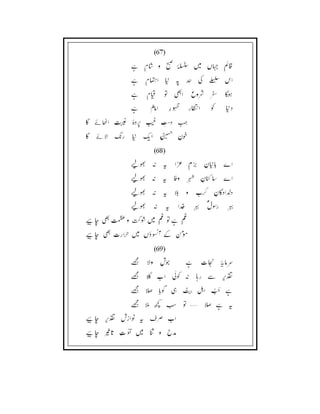 (67)
قائم جہاں میں سلسلۂ صبح و شام ہے
اس سلسلے کی حد پہ نیا اہتمام ہے
ہوگا سفر شروع ابھی تو قیام ہے
دنیا کو انتظار ظہور امام ہے
جب دست غیب پردۂ غیبت اٹھائے گا
خون حسینؑ ایک نیا رنگ لائے گا
(68)
اے بانیان بزم عزا یہ نہ بھولیے
اے ساکنان شہر وفا یہ نہ بھولیے
دلدادگان کرب و بلا یہ نہ بھولیے
بہر رسولؐ بہر خدا یہ نہ بھولیے
غم ہے تو غم میں شوکت و عظمت بھی چاہیے
مومن کے آنسوؤں میں حرارت بھی چاہیے
(69)
سرمایۂ نجات ہے جوش ولا مجھے
تقدیر سے رہا نہ کوئی اب گلا مجھے
ہے اب یہی صلا مجھے
یہ ہے صلا تو سب کچھ ملا مجھے
اب صرف یہ نوازش تقدیر چاہیے
مدح و ثنا میں قوت تاثیر چاہیے